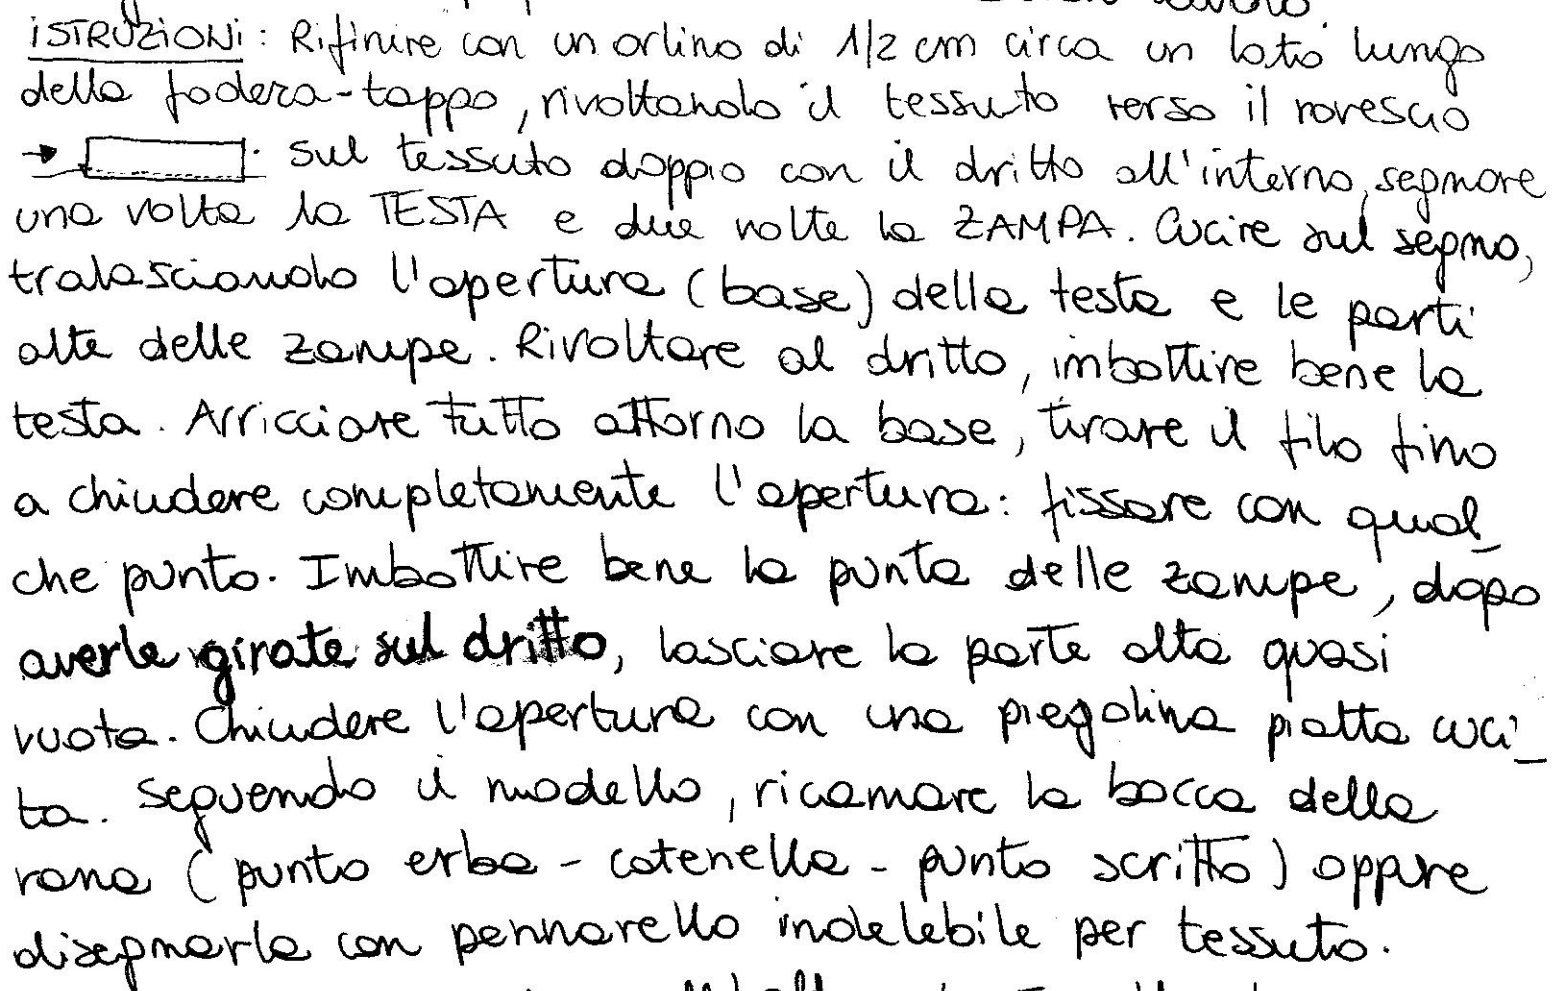 ISTRUZIONI: Rifinire con un orlino di 1/2 cm circa un lato lungo
della fodera-tappo, rivoltando il tessuto verso il rovescio
→ . Sul tessuto doppio con il dritto all'interno, segnare
una volta la TESTA e due volte la ZAMPA. Cucire sul segno,
tralasciando l'apertura (base) della testa e le parti
alte delle zampe. Rivoltare al dritto, imbottire bene la
testa. Arricciare tutto attorno la base, tirare il filo fino
a chiudere completamente l'apertura: fissare con qual_
che punto. Imbottire bene la punta delle zampe, dopo
averle girate sul dritto, lasciare la parte alta quasi
vuota. Chiudere l'apertura con una piegolina piatta cuci_
ta. Seguendo il modello, ricamare la bocca della
rana (punto erba - catenella - punto scritto) oppure
disegnarla con pennarello indelebile per tessuto.